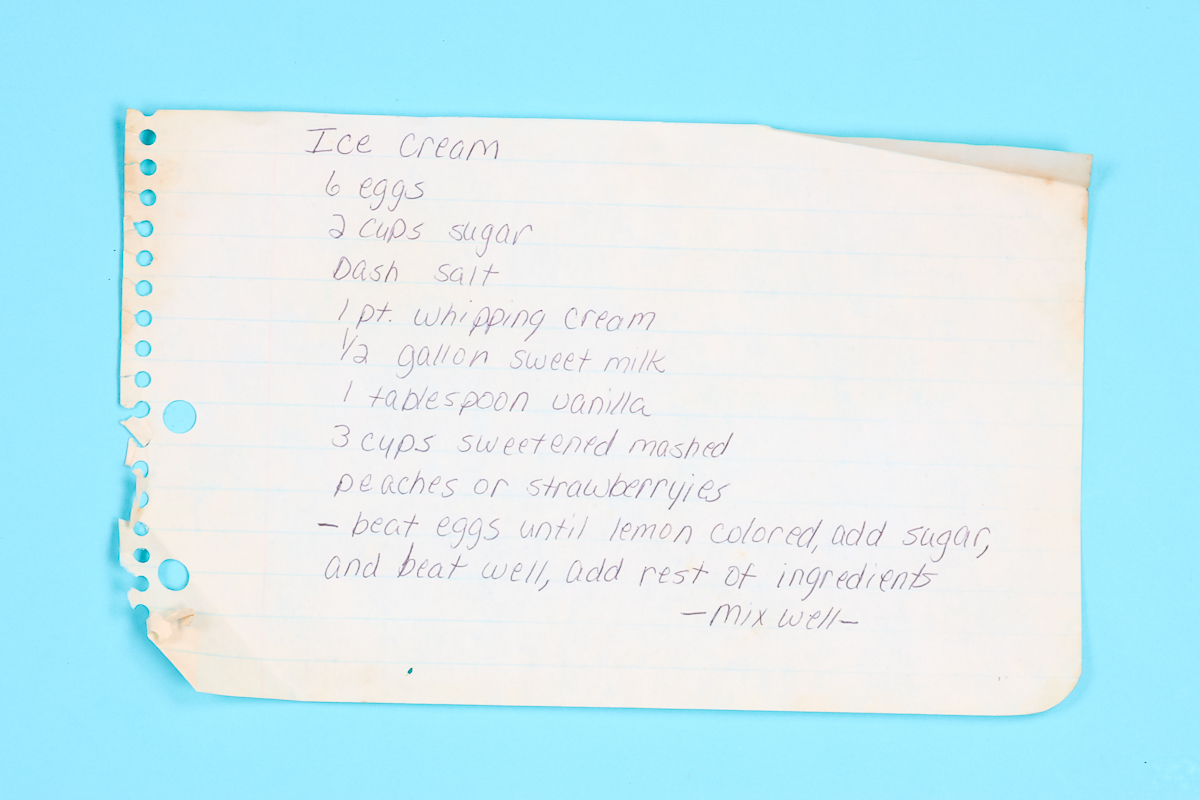 Ice cream
6 eggs
2 cups sugar
Dash salt
1 pt. whipping cream
1/2 gallon sweet milk
1 tablespoon vanilla
3 cups sweetened mashed
peaches or strawberryies
- beat eggs until lemon colored, add sugar,
and beat well, add rest of ingredients
- Mix well -